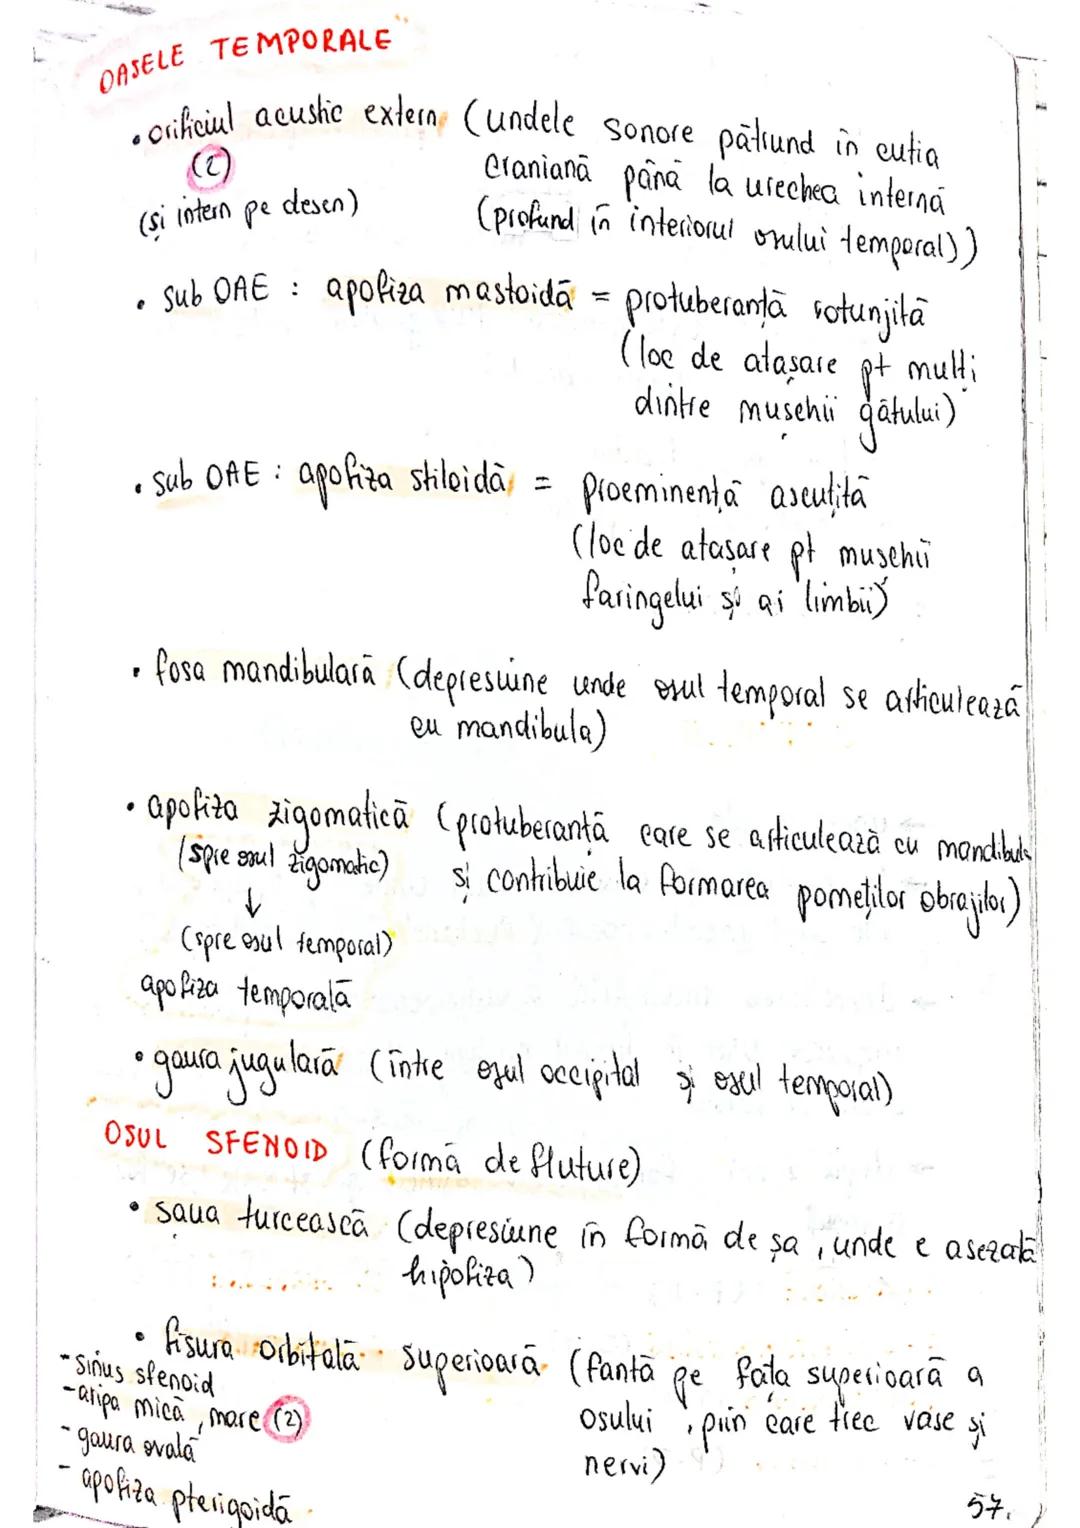 OASELE TEMPORALE
• orificiul acustic extern (undele sonore pătrund în cutia
(2) craniană până la urechea internă
(și intern pe desen) (profund în interiorul osului temporal))
• sub OAE : apofiza mastoidă = protuberanță rotunjită
(loc de atașare pt mulți
dintre mușchii gâtului)
• sub OAE : apofiza stiloidă = proeminență ascuțită
(loc de atașare pt mușchii
faringelui și ai limbii)
• fosa mandibulară (depresiune unde osul temporal se articulează
cu mandibula)
• apofiza zigomatică (protuberanță care se articulează cu mandibula
(spre osul zigomatic) și contribuie la formarea pomeților obrajilor)
↓
(spre osul temporal)
apofiza temporală
• gaura jugulară (între osul occipital și osul temporal)
OSUL SFENOID (formă de fluture)
• șaua turcească (depresiune în formă de șa, unde e așezată
hipofiza)
• fisura orbitală superioară (fantă pe fața superioară a
osului, prin care trec vase și
nervi)
- sinus sfenoid
- aripa mică, mare (2)
- gaura ovală
- apofiza pterigoidă
57.